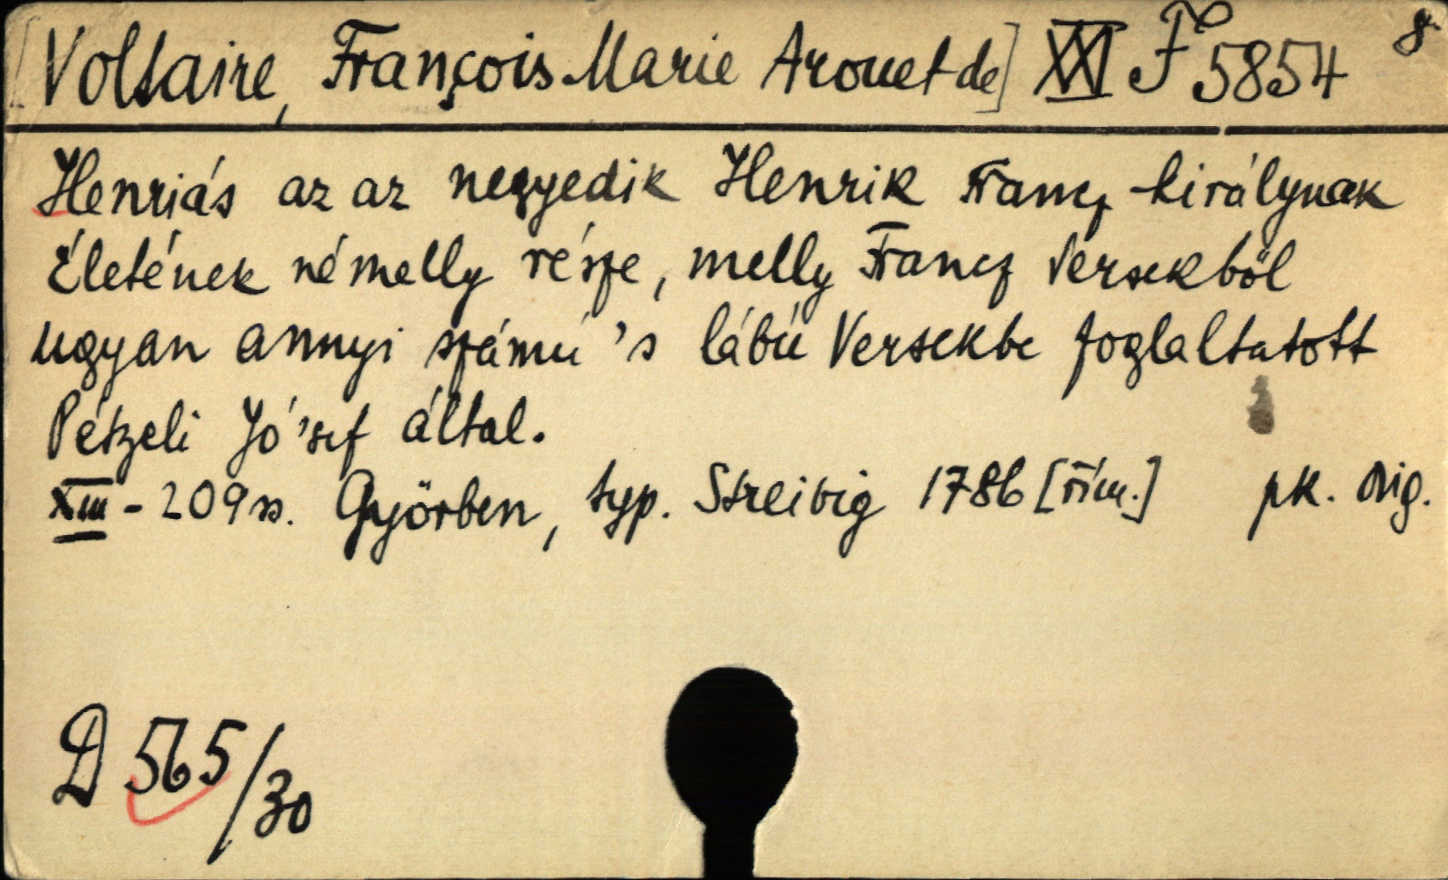 [Voltaire, François Marie Arouet de] XXI F 5854 8
Henriás az az negyedik Henrik Francz királynak
Életének némelly része, melly Francz Versekből
ugyan annyi számú 's lábú Versekbe foglaltatott
Pétzeli Jó'sef által.
XIII - 209 ss. Győrben, typ. Streibig 1786 [rím.] pk. Orig.
D 565/30